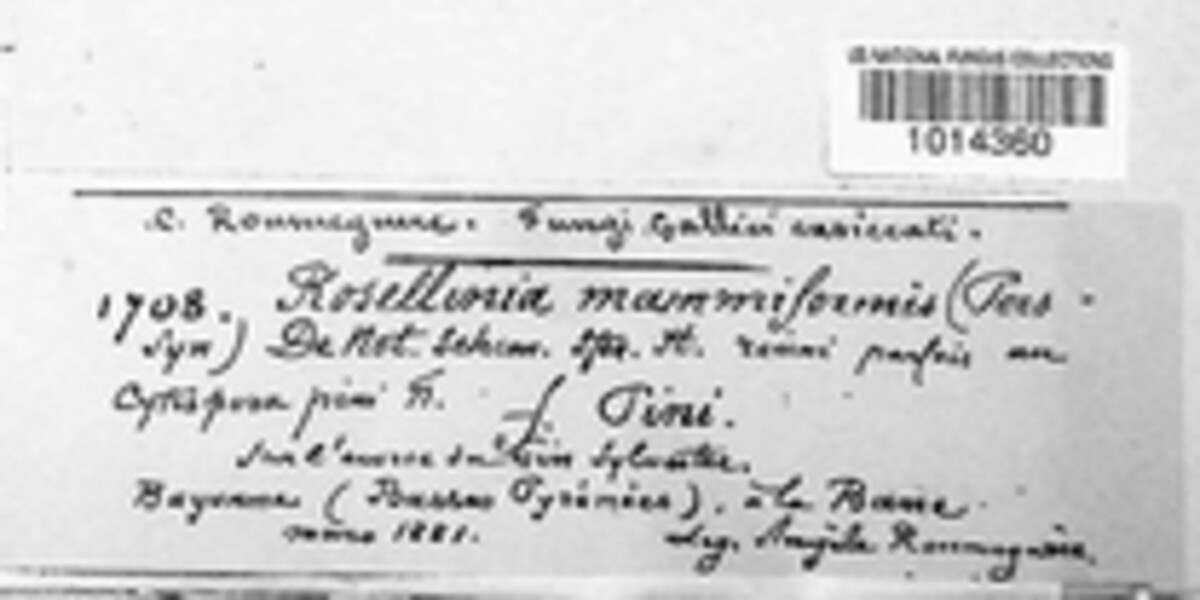 US NATIONAL FUNGUS COLLECTIONS
1014360
C. Roumeguère. Fungi Gallici exsiccati.
1708. Rosellinia mammiformis (Pers.
Syn) De Not. Schem. Sfer. It. réuni parfois au
Cytispora pini Fr. f. Pini.
Sur l'écorce du Pin Sylvestre.
Bayonne (Basses Pyrénées), à la Barre
mars 1881. Leg. Angèle Roumeguère.